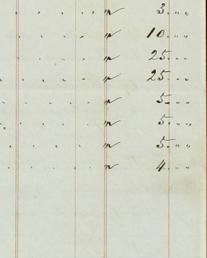 " 3. " "
" 10. " "
" 25. " "
" 25. " "
" 5. " "
" 5. " "
" 5. " "
" 4. " "